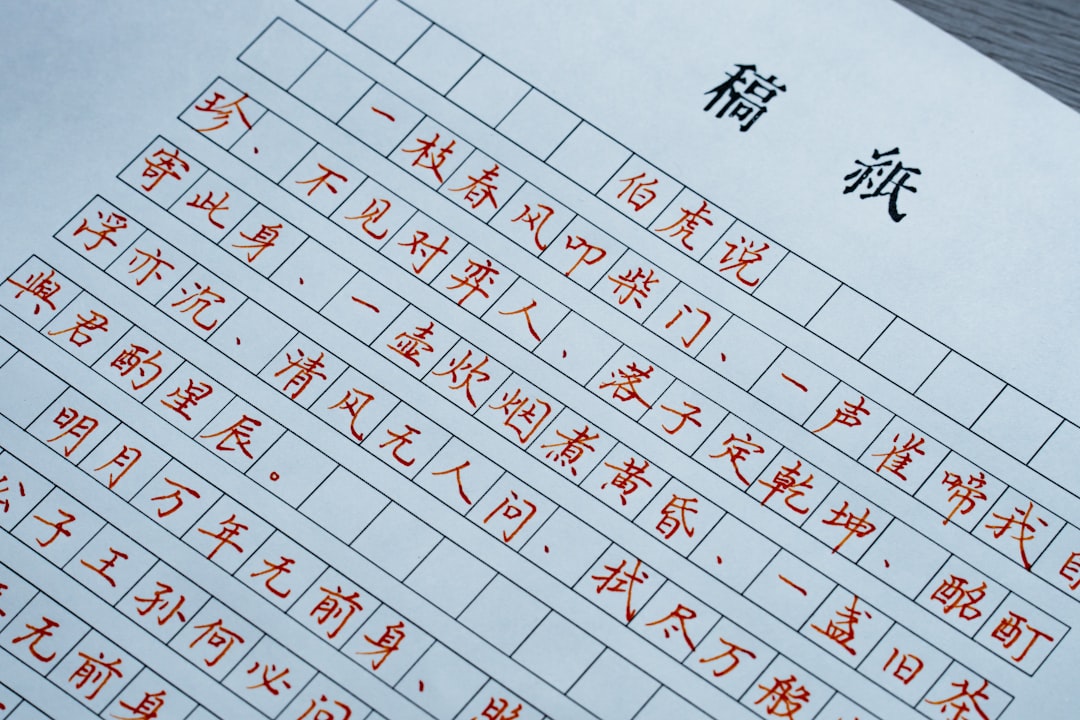 稿纸
伯虎说
一枝春风叩柴门、一声雀啼我自
珍、不见对弈人、落子定乾坤、酩酊
寄此身、一壶炊烟煮黄昏、一盏旧茶
浮亦沉、清风无人问、拭尽万般
與君酌星辰。
明月万年无前身、照
公子王孙何必问
无前身